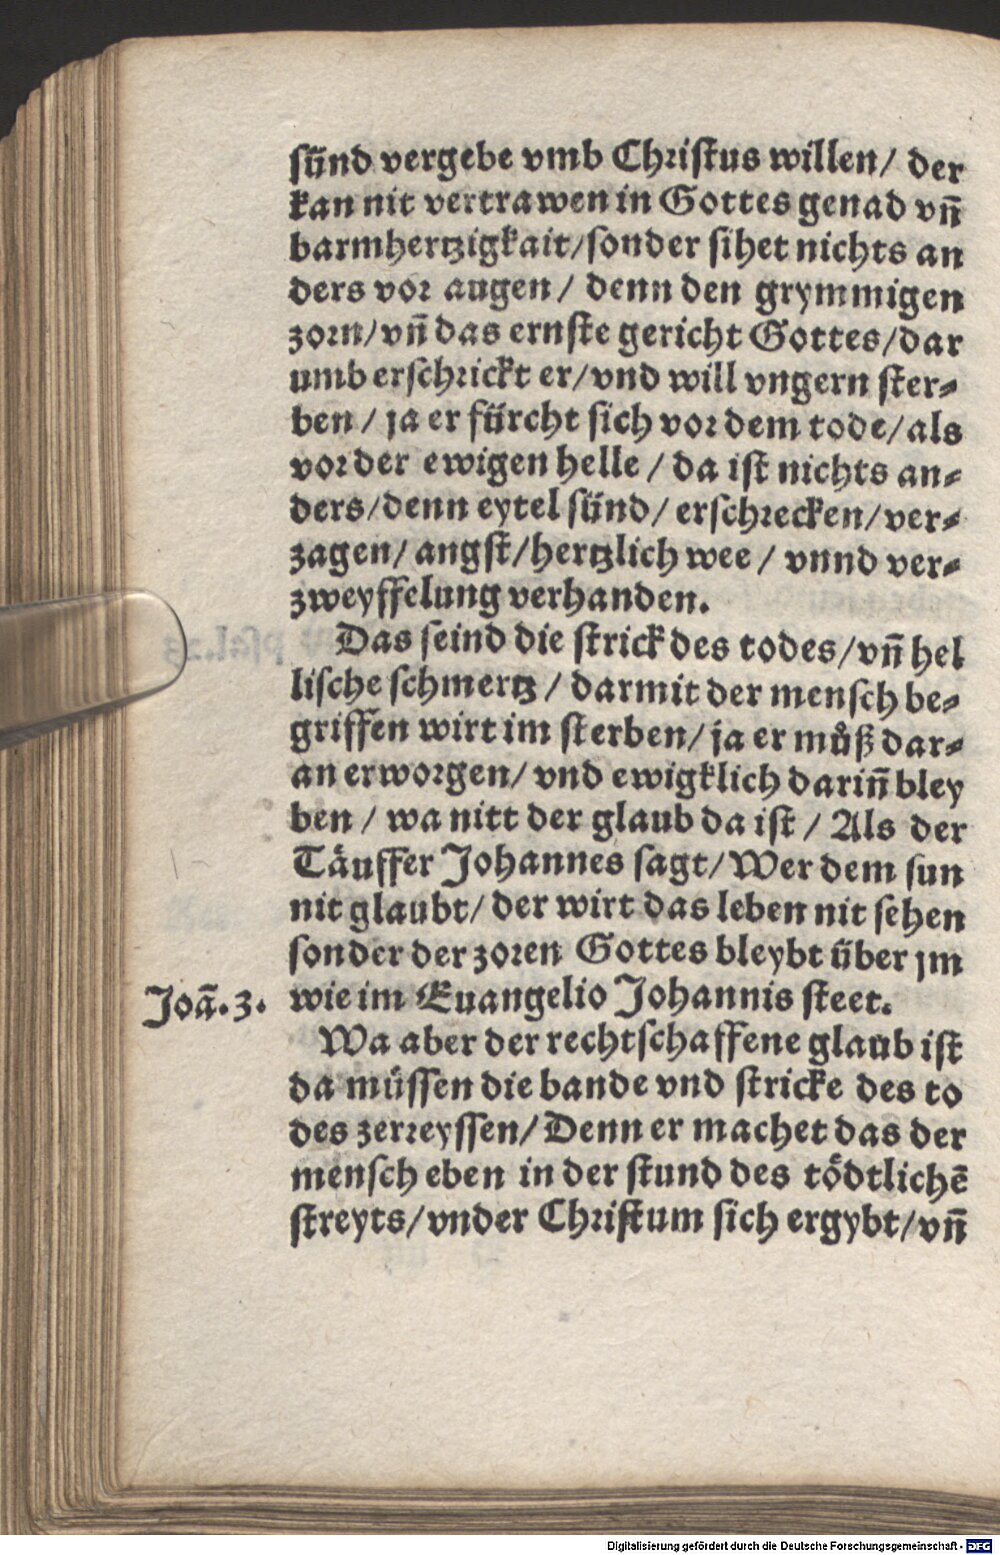 sünd vergebe vmb Christus willen/ der
kan nit vertrawen in Gottes genad vn̄
barmhertzigkait/sonder sihet nichts an
ders vor augen/ denn den grymmigen
zorn/vn̄ das ernste gericht Gottes/dar
umb erschrickt er/vnd will vngern ster⸗
ben/ ja er fürcht sich vor dem tode/als
vor der ewigen helle/ da ist nichts an⸗
ders/denn eytel sünd/ erschrecken/ver⸗
zagen/ angst/hertzlich wee/ vnnd ver⸗
zweyffelung verhanden.
Das seind die strick des todes/vn̄ hel
lische schmertz/ darmit der mensch be⸗
griffen wirt im sterben/ ja er můß dar⸗
an erworgen/ vnd ewigklich darin̄ bley
ben/ wa nitt der glaub da ist/ Als der
Täuffer Johannes sagt/Wer dem sun
nit glaubt/ der wirt das leben nit sehen
sonder der zoren Gottes bleybt über jm
Joā.3. wie im Euangelio Johannis steet.
Wa aber der rechtschaffene glaub ist
da müssen die bande vnd stricke des to
des zerreyssen/Denn er machet das der
mensch eben in der stund des tödtlichē
streyts/vnder Christum sich ergybt/vn̄
Digitalisierung gefördert durch die Deutsche Forschungsgemeinschaft - DFG